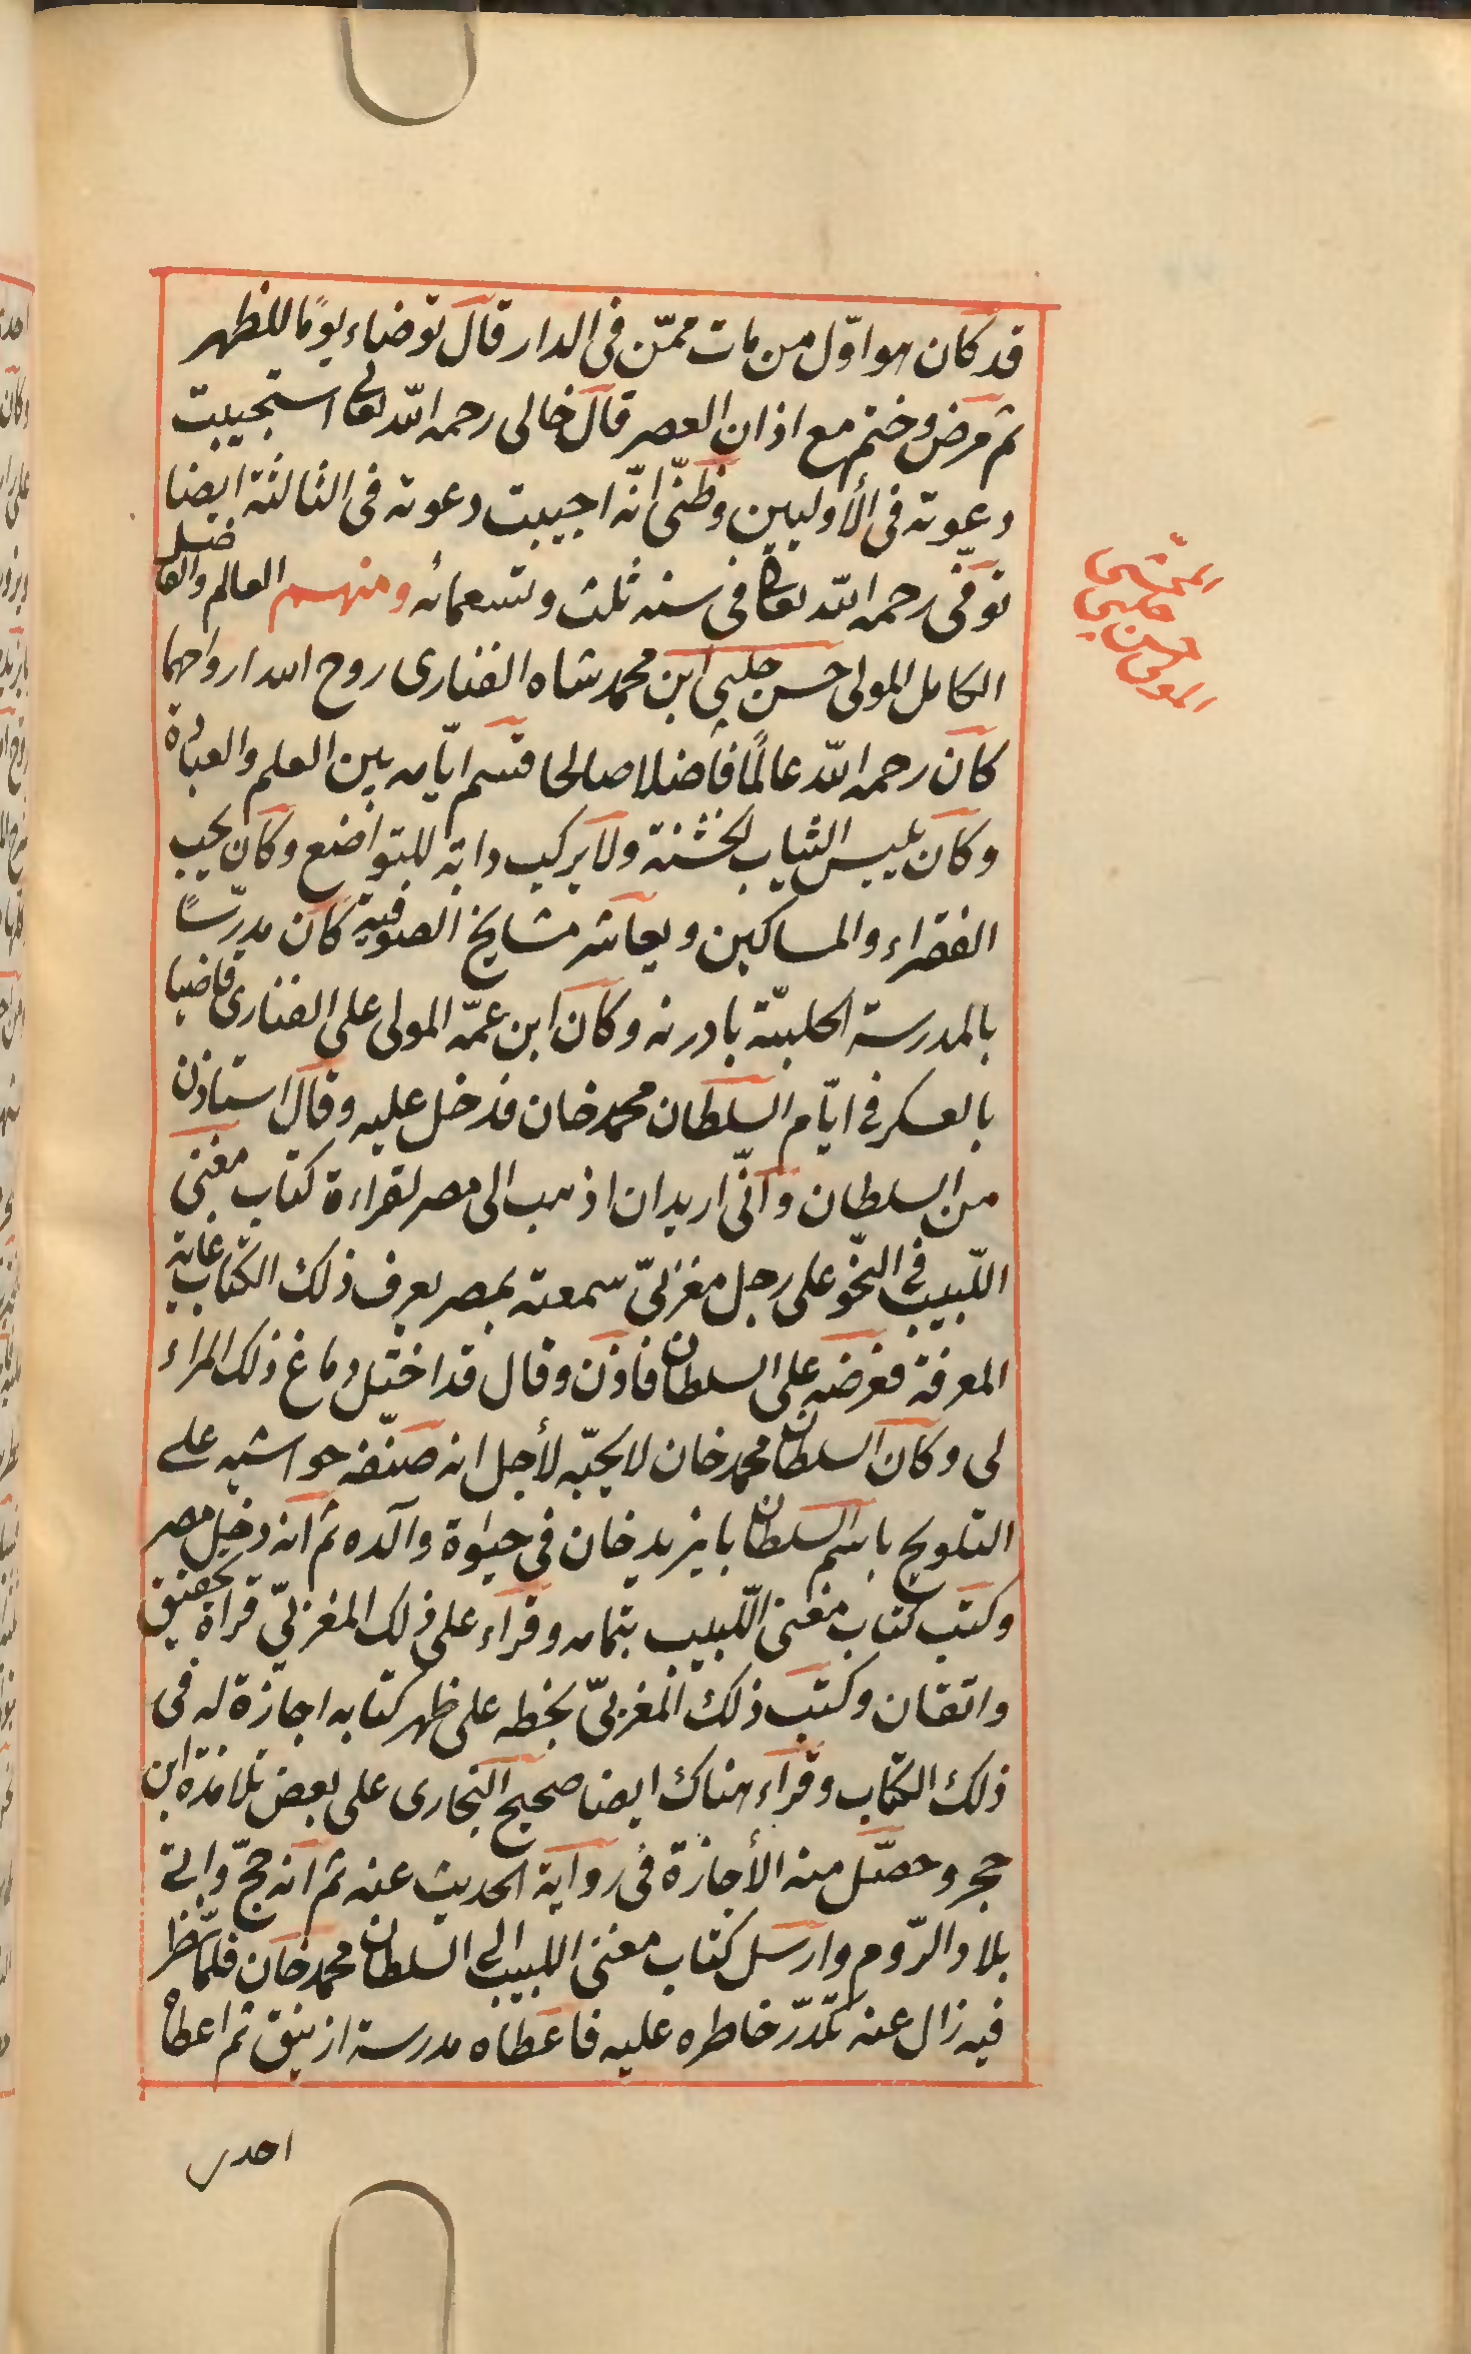 قد كان هو اوّل من مات ممّن فى الدار قال توضاء يومًا للظهر
ثم مرض وختم مع اذان العصر قال خالى رحمه اللّه تعالى استجيبت
دعوته فى الأوليين وظنّى انّه اجيبت دعوته فى الثالثة ايضا
توفّى رحمه اللّه تعالى فى سنه ثلث وتسعمائه ومنهم العالم والفاضل
الكامل المولى حسن چلبى ابن محمد شاه الفنارى روح الله ارواحهما
كان رحمه اللّه عالمًا فاضلا صالحا قسم ايّامه بين العلم والعبادة
وكان يلبس الثياب الخشنة ولا يركب دابة للتواضع وكان يحب
الفقراء والمساكين ويعاشر مشايخ الصوفية كان مدرّسًا
بالمدرسة الحلبيّة بادرنه وكان ابن عمّه المولى على الفنارى قاضيا
بالعسكر فى ايّام السلطان محمد خان فدخل عليه وقال استاذن
من السلطان وانّى اريد ان اذهب الى مصر لقراءة كتاب مغنى
اللّبيب فى النحو على رجل مغربىّ سمعته بمصر يعرف ذلك الكتاب غاية
المعرفة فعرضه على السلطان فاذن وقال قد اختل دماغ ذلك المراء
لى وكان السلطان محمد خان لا يحبّه لأجل انه صنّفه حواشيه على
التلويح باسم السلطان بايزيد خان فى حيوة والده ثم انه دخل مصر
وكتب كتاب مغنى اللّبيب بتمامه وقراء على ذلك المغربىّ قراة تحقيق
واتقان وكتب ذلك المغربىّ بخطه على ظهر كتابه اجازة له فى
ذلك الكتاب وقراء هناك ايضا صحيح البخارى على بعض تلامذة ابن
حجر وحصّل منه الأجازة فى رواية الحديث عنه ثم انه حجّ واتى
بلاد الرّوم وارسل كتاب مغنى اللبيب الى السلطان محمد خان فلمّا نظر
فيه زال عنه تكدّر خاطره عليه فاعطاه مدرسة ازنيق ثم اعطاه
احدى
المحشى
حسن چلبى
المولى